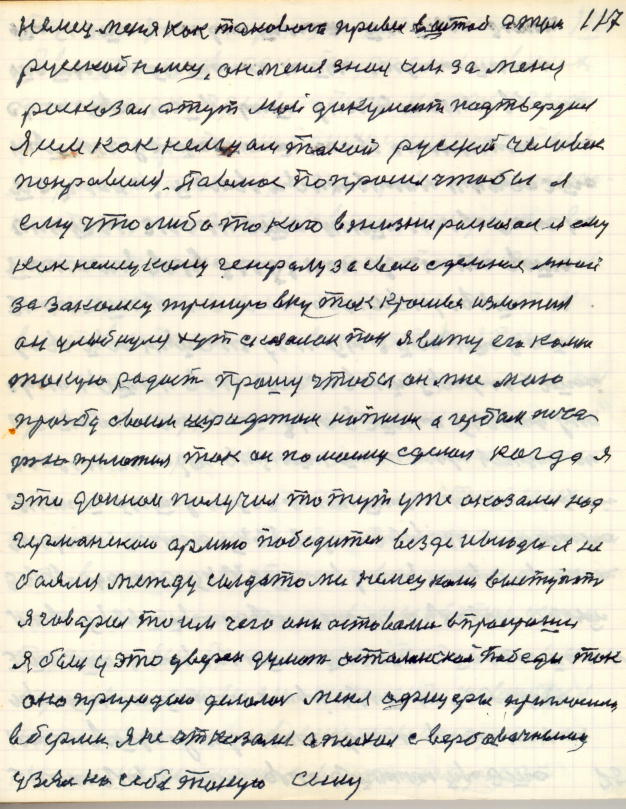 немец меня как такового привел в штаб а там 117
русской немец, он меня знал им за меня
расказал а тут мой документ подтвердил
Я им как немцам такой русской человек
понравился. Павлюс попросил чтобы я
ему что либо такого в жизни расказал я ему
как немецкому генералу за свою сделаная мной
за закалку тренировку так красива изложил
он улыбнулся и тут сказал он там я вижу его
такую радост прошу чтобы он мне мою
прозбу своим написал а гербам печа
приложил так он по моему сделал когда я
это данное получил то тут уже оказался над
германскою армию победител везде и всюду я не
боялся между солдатоми немецкоми выступать
я говарил то им чего они оставали в
Я был у это уверен думат сталинской Победы так
оно природаю делалос меня афицеры приглосили
в берлин я не отказался а поехал с
узял на себя такую силу